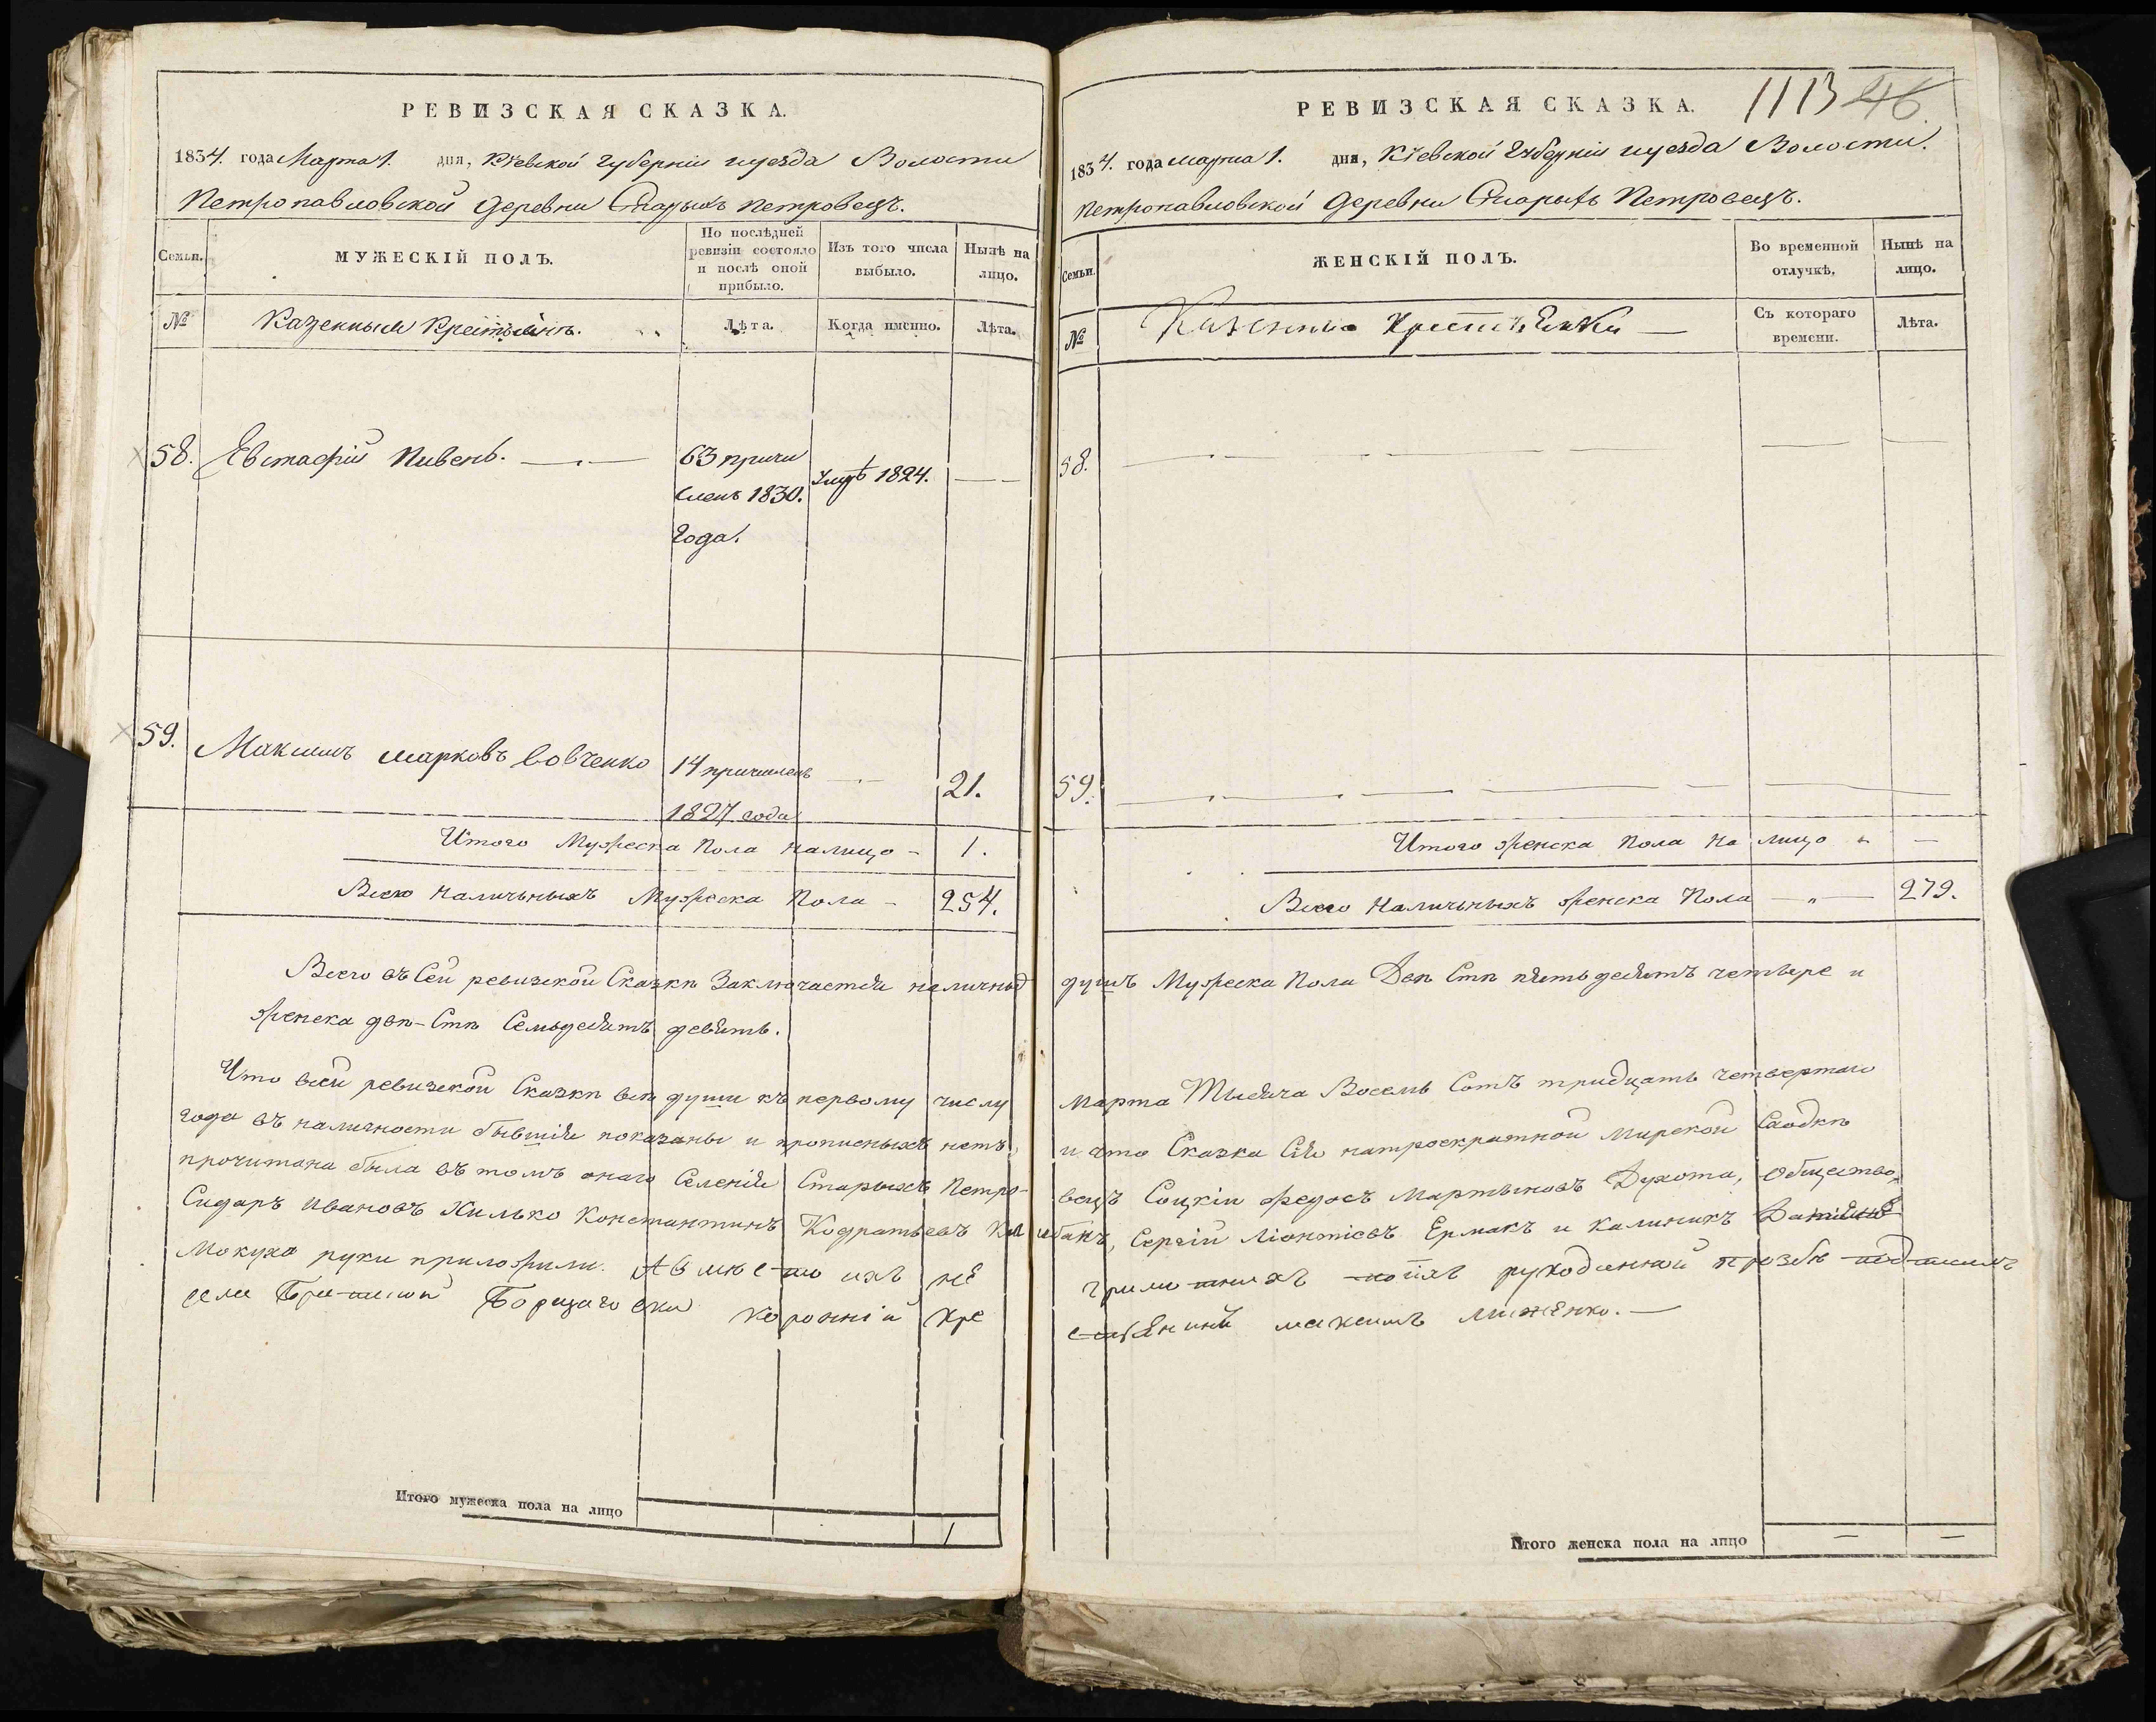 РЕВИЗСКАЯ СКАЗКА.
1834. года Марта 1. дня, Кіевской губерніи и уезда Волости
Петропавловской деревни Старыхъ Петровецъ.
Семьи.
МУЖЕСКІЙ ПОЛЪ.
По послѣдней ревизіи состояло и послѣ оной прибыло.
Изъ того числа выбыло.
Нынѣ на лицо.
№
Казенныи Крестьяне.
Лѣта.
Когда именно.
Лѣта.
58. Евстафій Пивень. 63 причи
сленъ 1830.
года.
Умрѣ 1824.
59. Максимъ Марковъ Вовченко 14 причисленъ
1827 года
21.
Итого Мужеска Пола налицо - 1.
Всего Наличныхъ Мужеска Пола - 254.
Всего въ Сей ревизской Сказкѣ Заключается наличныхъ
женска двѣ-Стѣ Семьдесятъ девять.
Что всей ревизской Сказкѣ всѣ души къ первому числу
года въ наличности бывшія показаны и прописныхъ нетъ,
прочитана была въ томъ онаго Селенія Старыхъ Петро-
Сидаръ Ивановъ Хилько Константинъ Кодратьевъ
Мокуха руки приложили. А вместо ихъ не
села Борщаговки коронній кре
Итого мужеска пола на лицо
1
РЕВИЗСКАЯ СКАЗКА.
1113 46.
1834. года марта 1. дня, Кіевской Губерніи и уезда Волости.
Петропавловской деревни Старыхъ Петровецъ.
Семьи.
ЖЕНСКІЙ ПОЛЪ.
Во временной отлучкѣ.
Нынѣ на лицо.
№
Казенние Крестьянки
Съ котораго времени.
Лѣта.
58.
59.
Итого женска пола на лицо " -
Всего Наличныхъ женска Пола - " - 279.
душъ Мужеска Пола Двѣ Стѣ пятьдесятъ четыре и
Марта Тысяча Восемь Сотъ тридцать четвертаго
и что Сказка Сія натроекратной мирской Сходкѣ
вецъ Соцкіи Федосъ Мартыновъ Духота, Общество,
Сергій Ліонтіевъ Ермакъ и Калиникъ
грамотнихъ поихъ рукоданной прозбѣ
стьянинъ максимъ
Итого женска пола на лицо